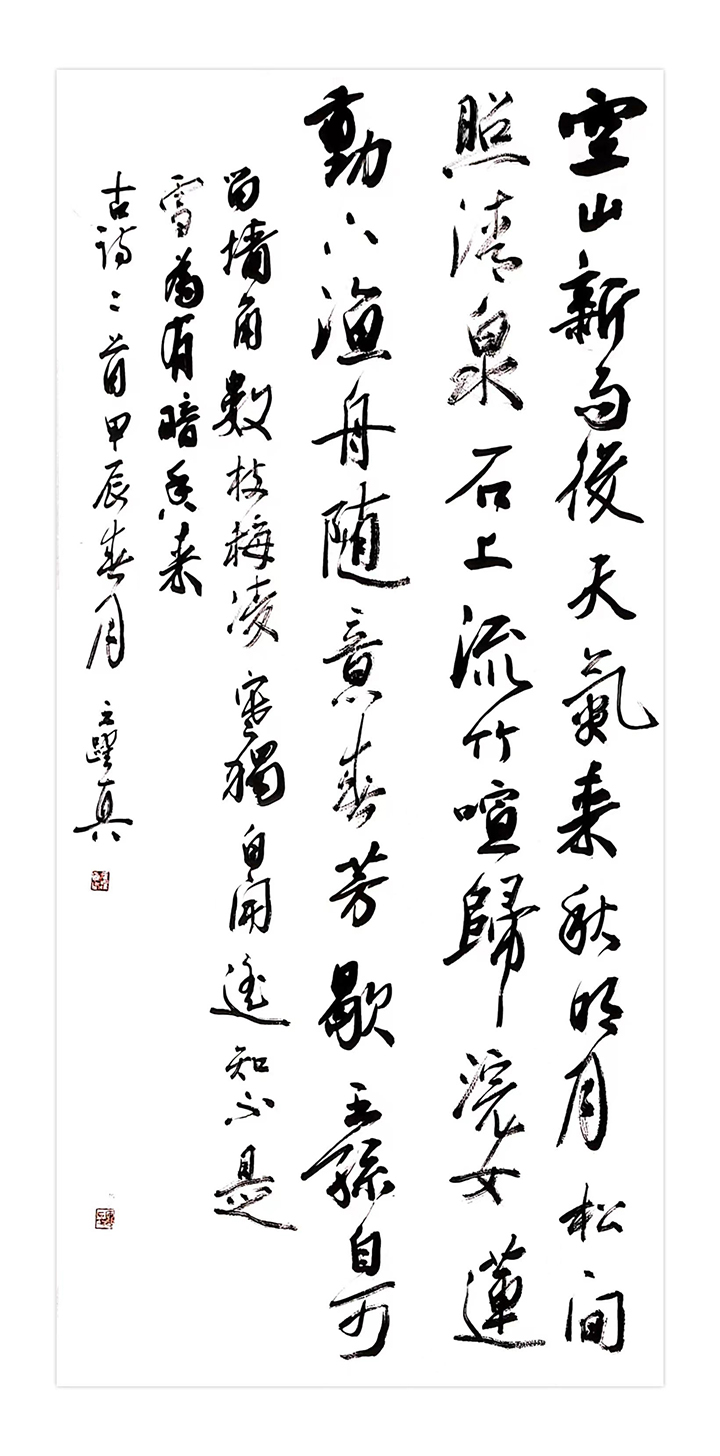 空山新雨後天氣来秋明月松间
照清泉石上流竹喧歸浣女蓮
動下漁舟随意春芳歇王孫自可
留墙角數枝梅凌寒獨自開遥知不是
雪為有暗香来
古詩二首甲辰春月王躍真